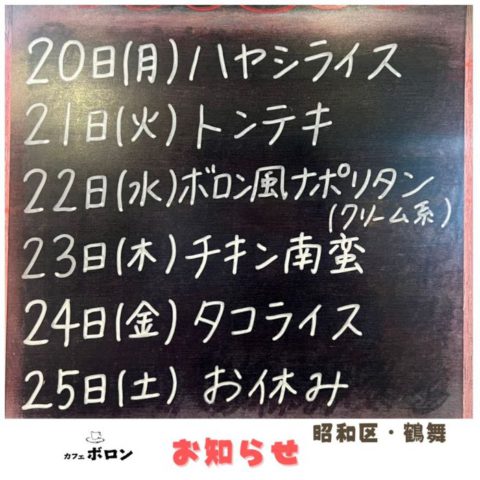 20日(月)ハヤシライス
21日(火)トンテキ
22日(水)ボロン風ナポリタン
(クリーム系)
23日(木)チキン南蛮
24日(金)タコライス
25日(土)お休み
カフェ ボロン
お知らせ
昭和区・鶴舞